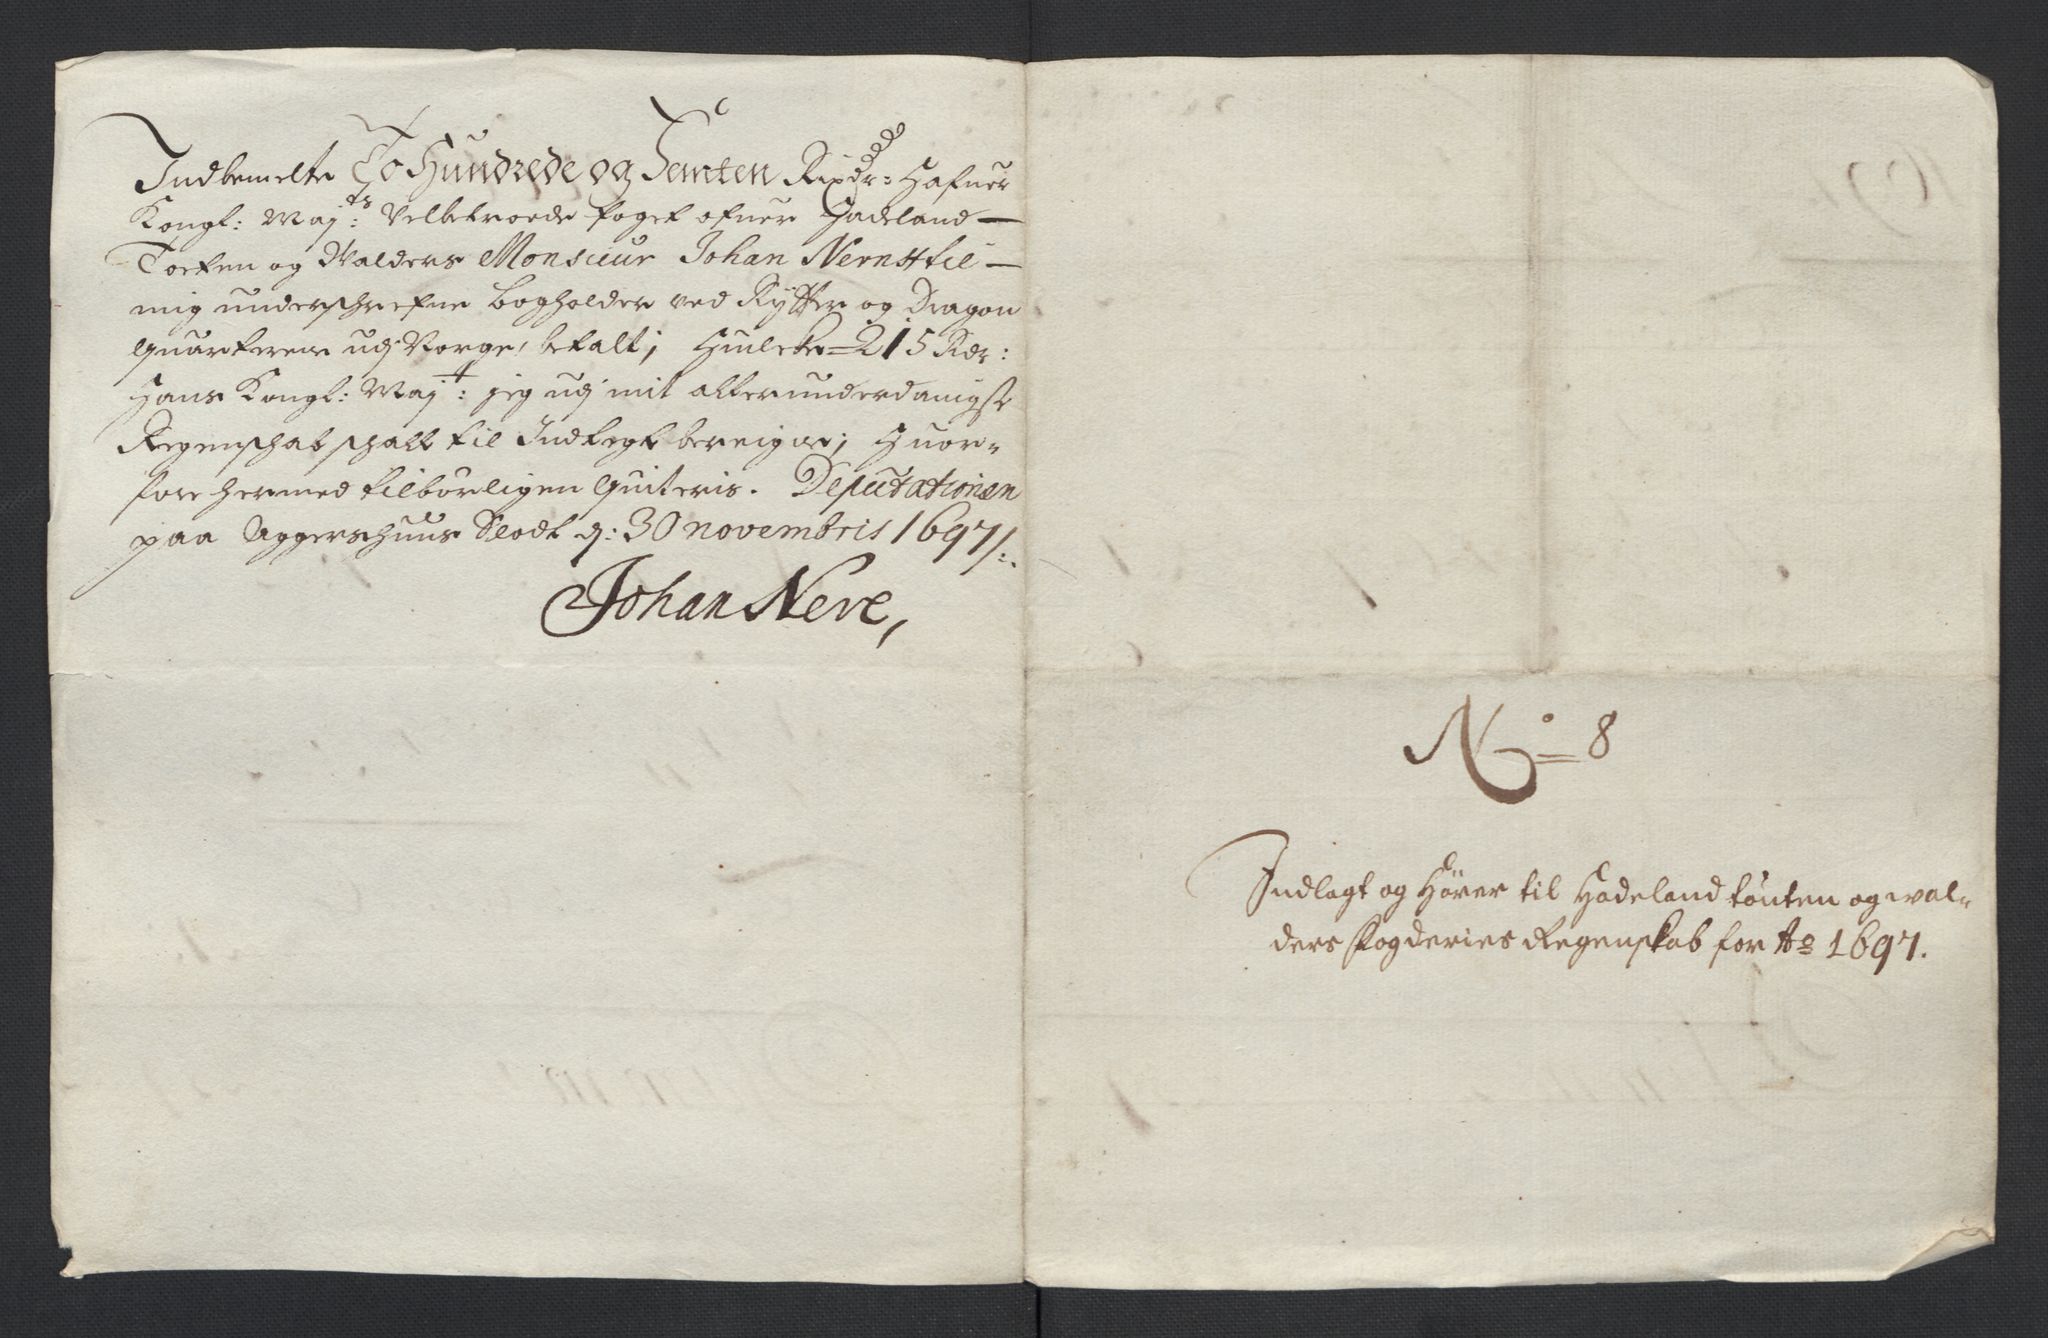 Indbemelte To Hundrede og Femten Rixdr: Hafuer
Kongl: Maj:ts Velbetroede foget ofuer Hadeland
Toeten og Walders Monsieur Johan Nernst til
mig underschrefne bogholder ved Rytter og Dragon
quarterene udj Norge, betalt; Huilche 215 Rdr:
Hans Kongl: Maj:t jeg udj mit allerunderdanigste
Regenschab schall til Indtegt beregne; Huor-
fore hermed tilbørligen quiteris. Deputationen
paa Aggershuus Slodt d: 30 novembris 1697/:.
Johan Nere,
No= 8
Indlagt og Hører til Hadeland tønten og wal-
ders fogderies Regenskab for Ao 1697.